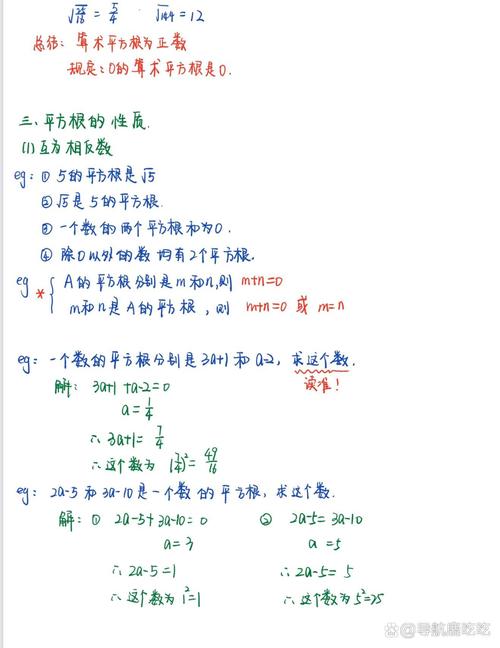 √25/16 = 5/4   √144 = 12
总结：算术平方根为正数
规定：0的算术平方根是0.
三、平方根的性质.
(1) 互为相反数
eg：① 5的平方根是√5
② √5是5的平方根.
③ 一个数的两个平方根和为0.
④ 除0以外的数均有2个平方根.
eg * { A的平方根分别是m和n,则 m+n=0
m和n是A的平方根，则 m+n=0 或 m=n
eg：一个数的平方根分别是3a+1和a-2，求这个数.
解：3a+1+a-2=0 读准！
a=1/4
∴3a+1=7/4
∴这个数为 (7/4)²=49/16
eg：2a-5和3a-10是一个数的平方根，求这个数.
解：① 2a-5+3a-10=0 ② 2a-5=3a-10
a=3 a=5
∴2a-5=1 ∴2a-5=5
∴这个数为1²=1 ∴这个数为5²=25
@导航鹿吃吃